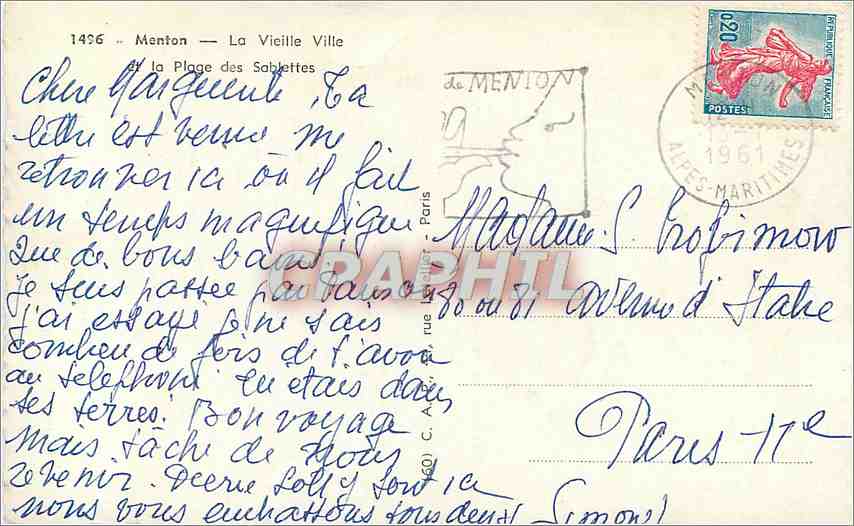 1496 - Menton — La Vieille Ville
et la Plage des Sablettes
Chère Marguerite, Ta
lettre est venue me
retrouver ici où il fait
un temps magnifique
Que de bons bains!
Je suis passée par
j'ai essayé je ne sais
combien de fois de t'avoir
au téléphone Tu étais dans
tes terres. Bon voyage
mais tâche de nous
revenir. sont ici
nous vous embrassons tous deux
Simone
de MENTON
MENTON
1961
ALPES-MARITIMES
0,20
REPUBLIQUE FRANÇAISE
POSTES
Madame S. Trofimow
80 ou 81 avenue d'Italie
Paris-13e
(60) C. A. P. rue Paris
CRAPHIL